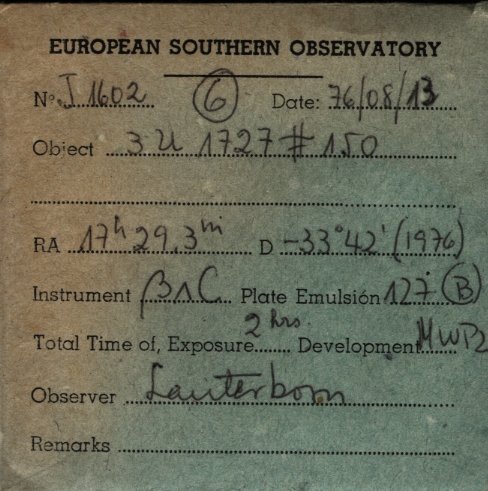 EUROPEAN SOUTHERN OBSERVATORY
Nº. J 1602 6 Date: 76/08/13
Object 3 U 1727 # 150
RA 17h 29.3m D -33°42' (1976)
Instrument B&C Plate Emulsión 127 B
Total Time of, Exposure 2 hrs Development MWP2
Observer Lauterborn
Remarks